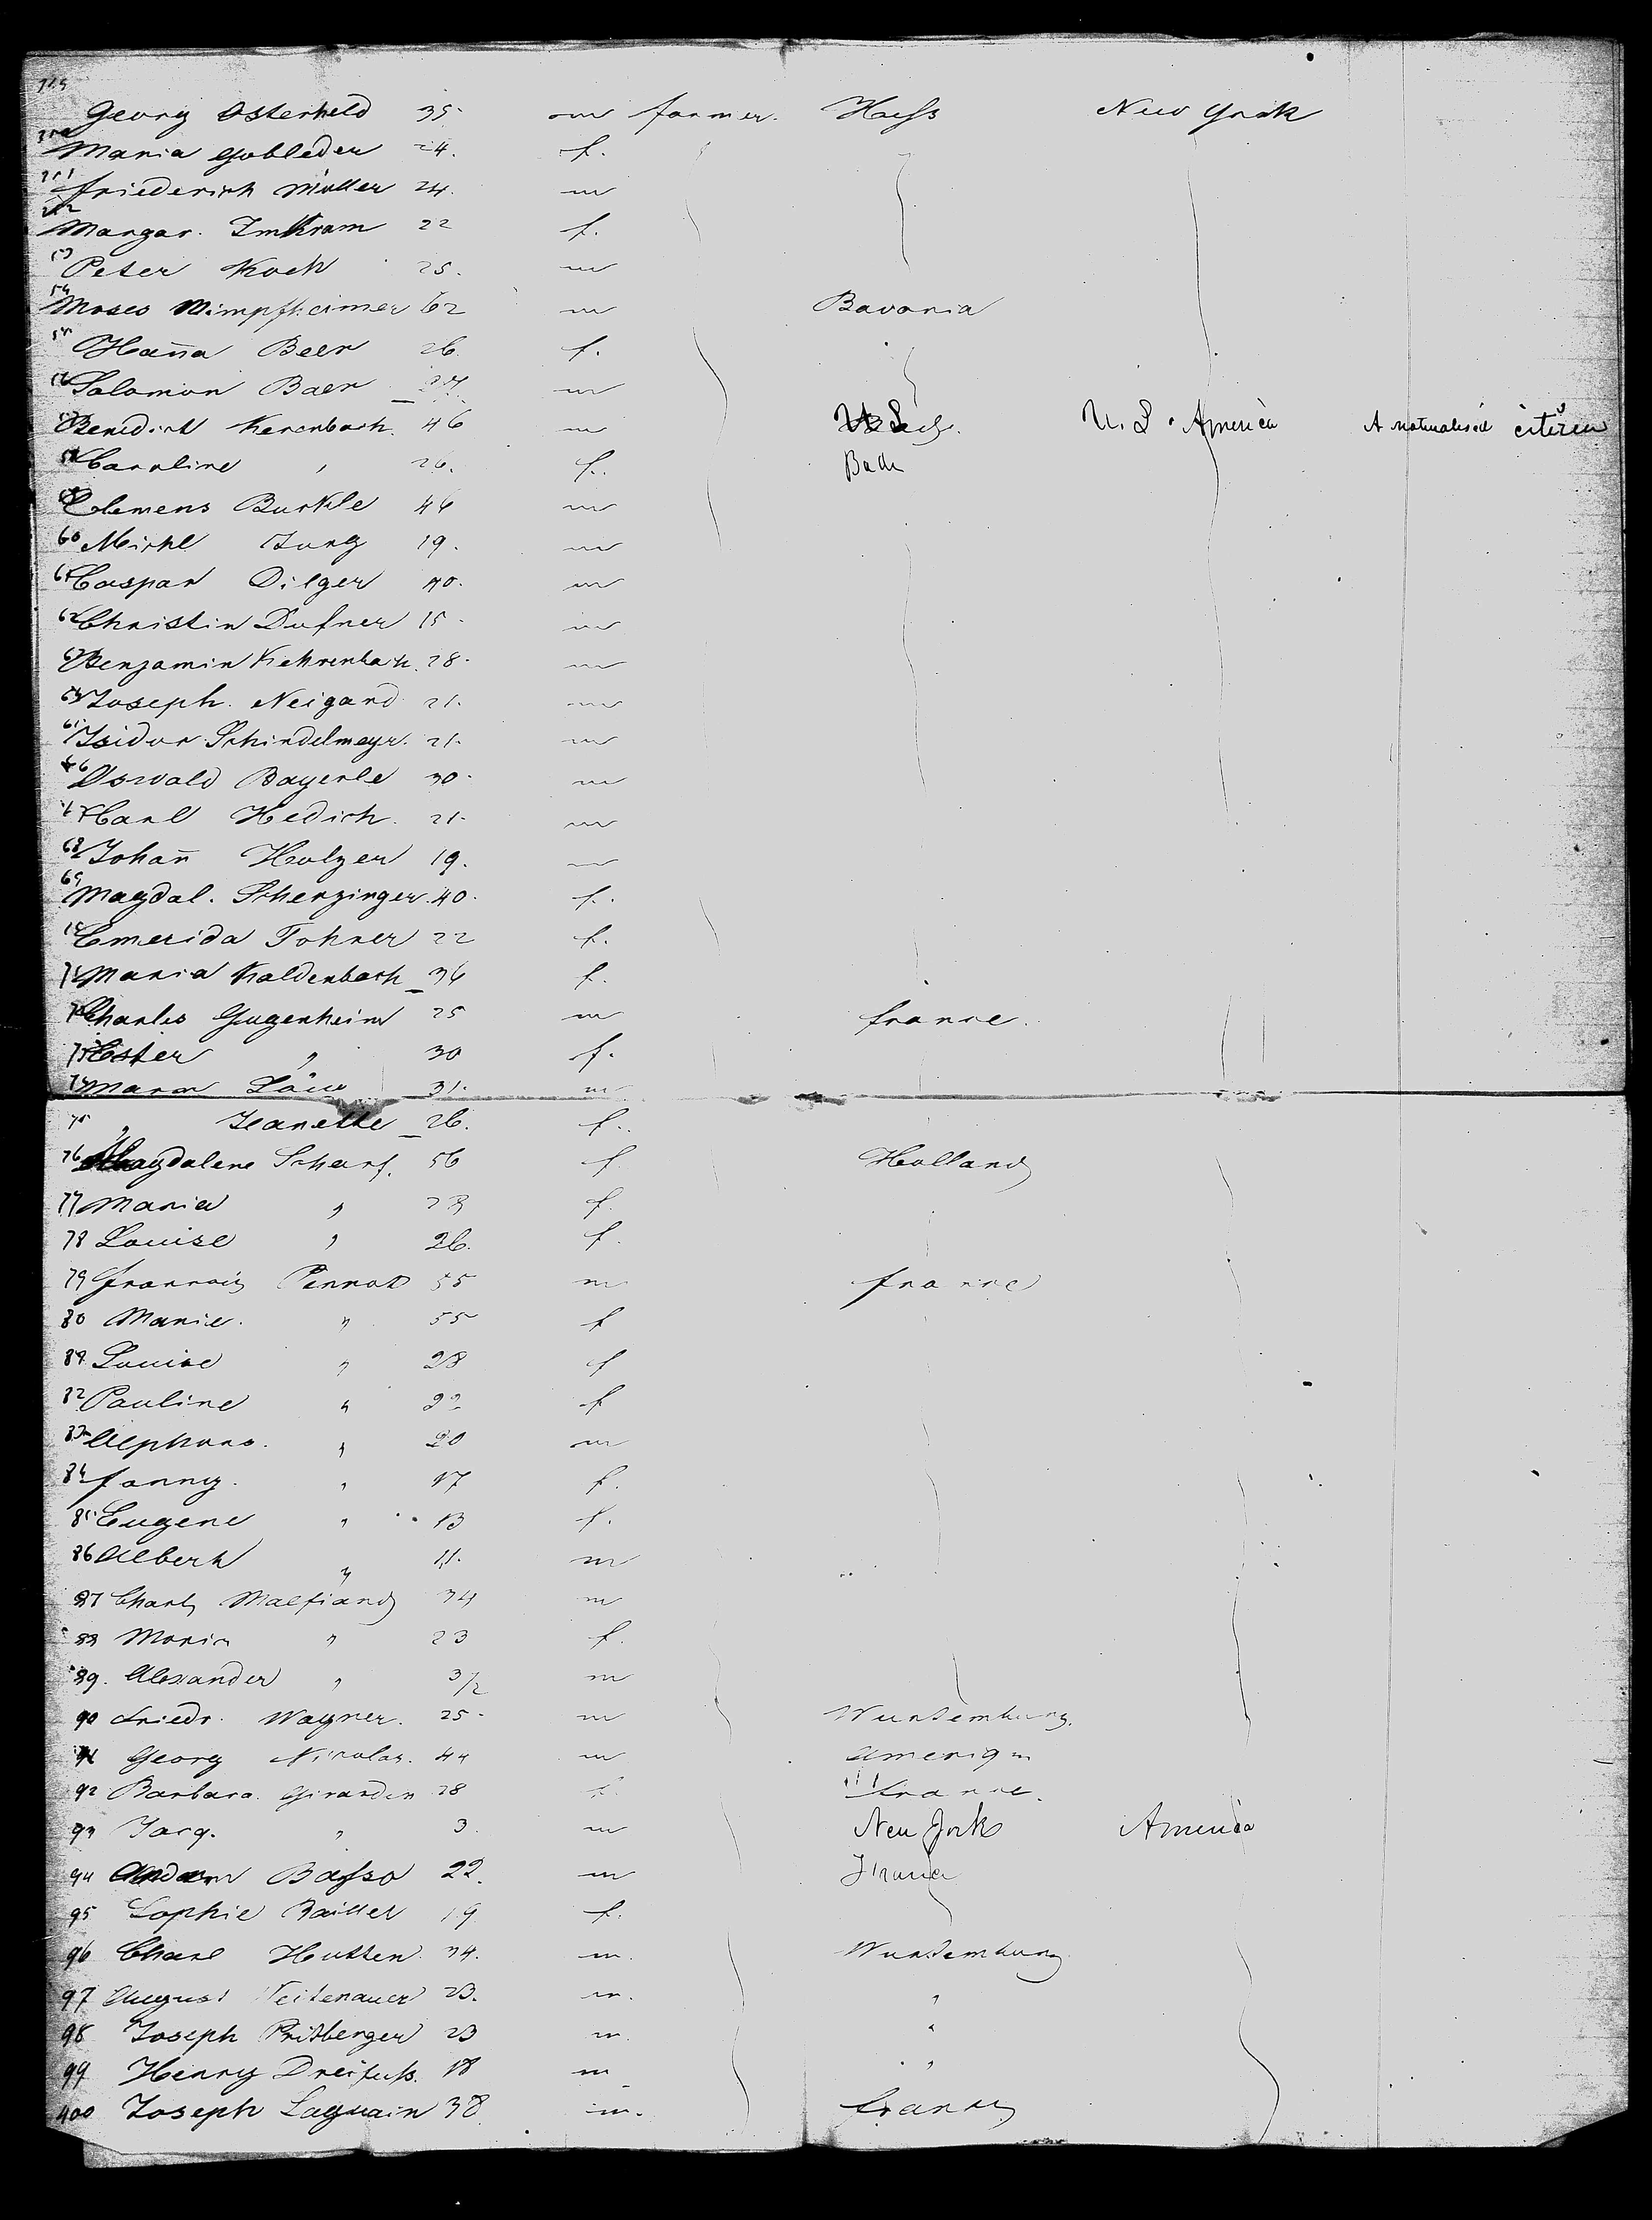 Georg Osterheld 35 m farmer. Hess New York
Maria Gobleder 24. f.
211 Friederich Müller 24. m
Margar. Imkram 22 f.
53 Peter Koch 25. m
54 Moses Wimpfheimer 62 m Bavaria
Hana Beer 26. f.
Solomon Baer 27. m
Benedict Kerenbach. 46 m U. S. America A naturalised citizen
58 Caroline " 26. f. Bade
Clemens Burkle 46 m
60 Michl Jung 19. m
61 Caspar Dilger 40. m
62 Christin Dufner 15. m
63 Benjamin Kehrenbach. 28. m
64 Joseph. Neigand 21. m
65 Isidor Schindelmeyr. 21. m
66 Oswald Bayerle 30. m
67 Carl Hedich. 21. m
68 Johan Holzer 19. m
69 Magdal. Scherzinger. 40. f.
70 Emerida Fohrer 22 f.
71 Maria Kaldenbach 36 f.
72 Charles Gugenheim 25 m france.
73 Ester " 30 f.
74 Löw 31. m
75 " Jeanette 26. f.
76 Magdalene Scharf. 56 f Holland
77 Maria " 28 f.
78 Louise " 26. f.
79 Francois Perrot 55 m france
80 Marie. " 55 f
81 Louise " 28 f
82 Pauline " 22 f
83 Alphons. " 20 m
84 fanny. " 17 f.
85 Eugene " 13 f.
86 Albert " 11. m
87 Charls Malfiand 34 m
88 Maria " 23 f.
89. Alexander " 3/2 m
90 Friedr. Wagner. 25. m Wurtemburg.
91 Georg Nicolas. 44 m
92 Barbara. Girardin 28 f. france.
93 Jacq. " 3. m New York America
94 Basso 22. m France
95 Sophie 19 f.
96 Charl Hutten. 34. m. Wurtemburg
97 August Neitenauer 23. m. "
98 Joseph Pritberger 23 m. "
99 Henry Dreifuss. 18 m "
400 Joseph Laguain 38 m. france